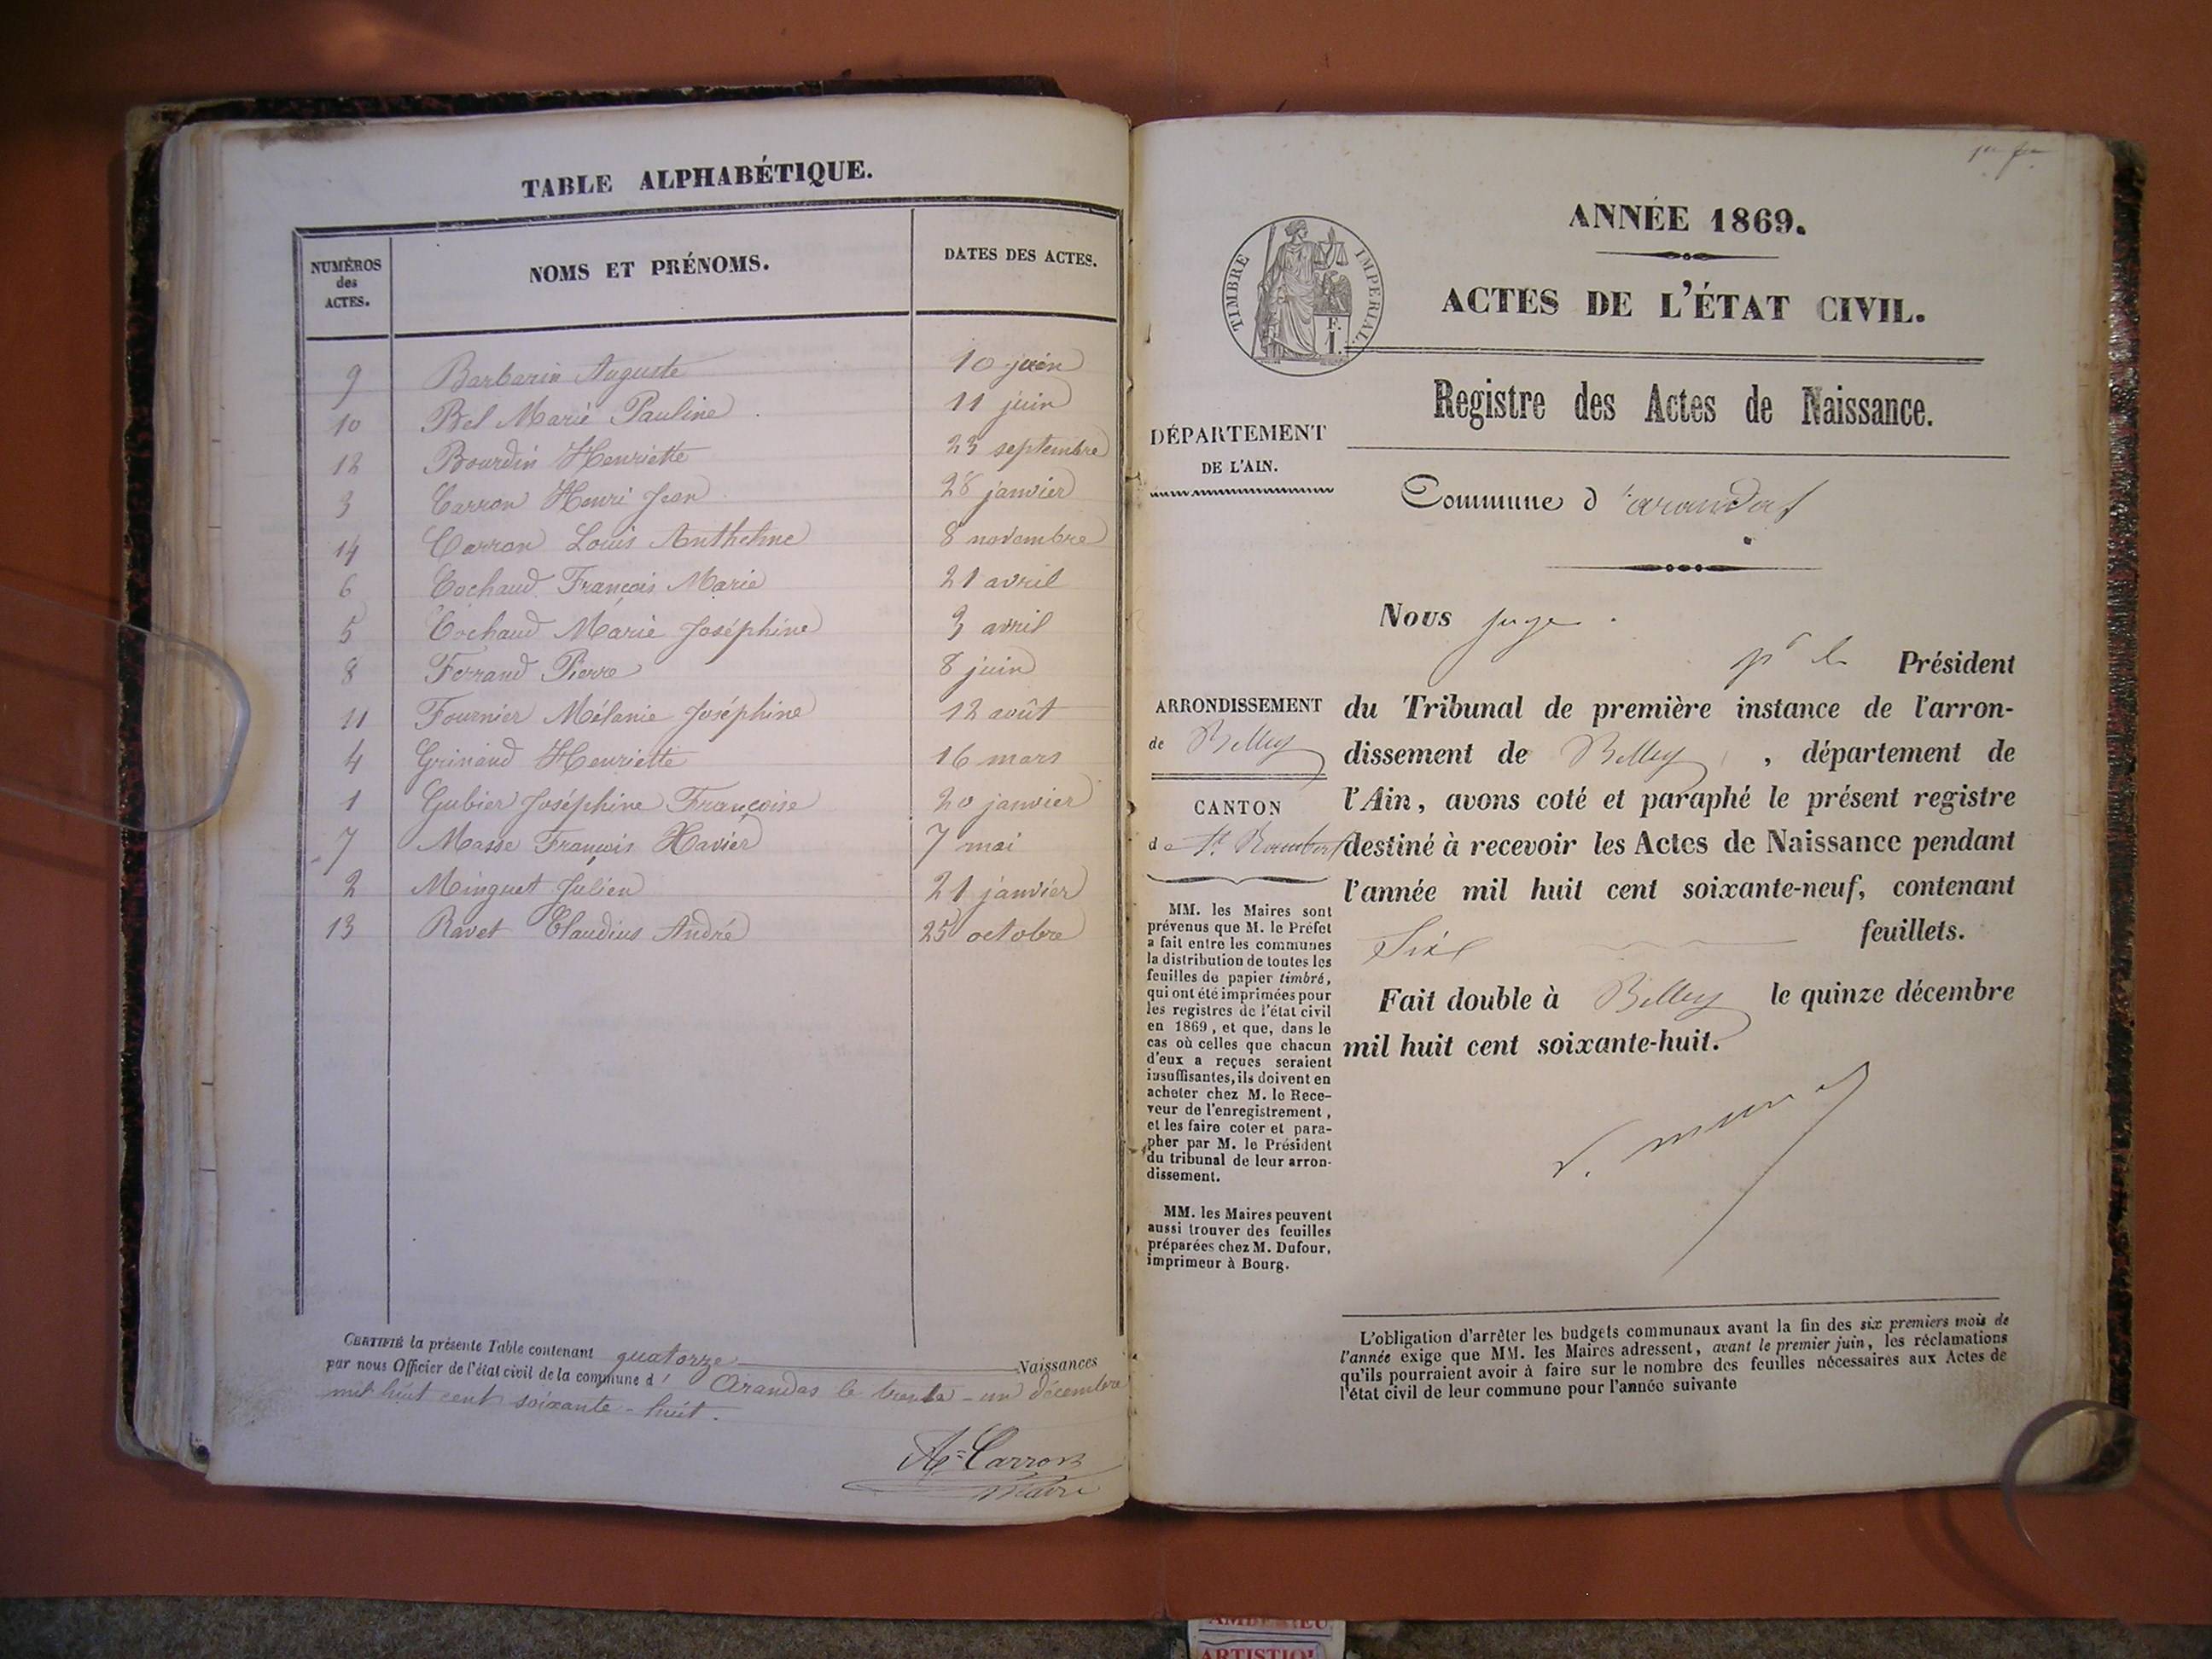 TABLE ALPHABÉTIQUE.
NUMÉROS des ACTES. NOMS ET PRÉNOMS. DATES DES ACTES.
9 Barbarin Auguste 10 juin
10 Bel Marie Pauline 11 juin
12 Bourdin Henriette 23 septembre
3 Carron Henri Jean 28 janvier
14 Carron Louis Anthelme 8 novembre
6 Cochaud François Marie 21 avril
5 Cochaud Marie Joséphine 3 avril
8 Ferrand Pierre 8 juin
11 Fournier Mélanie Joséphine 12 août
4 Grinand Henriette 16 mars
1 Gubier Joséphine Françoise 20 janvier
7 Masse François Xavier 7 mai
2 Minguet Julien 21 janvier
13 Ravet Claudius André 25 octobre
CERTIFIÉ la présente Table contenant quatorze Naissances
par nous Officier de l'état civil de la commune d' Arandas le trente-un décembre
mil huit cent soixante-huit.
A. Carron
Maire
ANNÉE 1869.
TIMBRE IMPERIAL
F.
1.
ACTES DE L'ÉTAT CIVIL.
Registre des Actes de Naissance.
DÉPARTEMENT
DE L'AIN.
Commune d'arandas
Nous juge
pr le Président
ARRONDISSEMENT
de Belley
CANTON
de St Rambert
du Tribunal de première instance de l'arron-
dissement de Belley, département de
l'Ain, avons coté et paraphé le présent registre
destiné à recevoir les Actes de Naissance pendant
l'année mil huit cent soixante-neuf, contenant
Six feuillets.
Fait double à Belley le quinze décembre
mil huit cent soixante-huit.
MM. les Maires sont
prévenus que M. le Préfet
a fait entre les communes
la distribution de toutes les
feuilles de papier timbré,
qui ont été imprimées pour
les registres de l'état civil
en 1869, et que, dans le
cas où celles que chacun
d'eux a reçues seraient
insuffisantes, ils doivent en
acheter chez M. le Rece-
veur de l'enregistrement,
et les faire coter et para-
pher par M. le Président
du tribunal de leur arron-
dissement.
MM. les Maires peuvent
aussi trouver des feuilles
préparées chez M. Dufour,
imprimeur à Bourg.
L'obligation d'arrêter les budgets communaux avant la fin des six premiers mois de
l'année exige que MM. les Maires adressent, avant le premier juin, les réclamations
qu'ils pourraient avoir à faire sur le nombre des feuilles nécessaires aux Actes de
l'état civil de leur commune pour l'année suivante